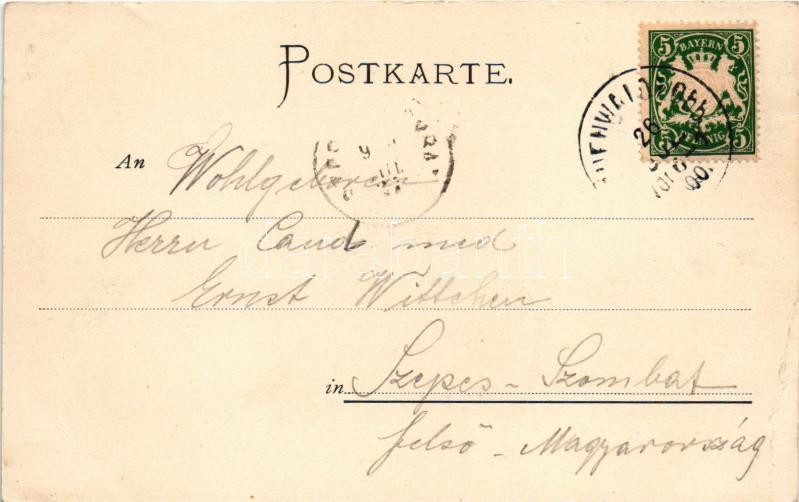 5 BAYERN 5
5 PFENNIG 5
POSTKARTE.
26
00.
An Wohlgeboren
Herrn Cand. med
Ernst Wittchen
in Szepes-Szombat
felső-Magyarország
darabanth